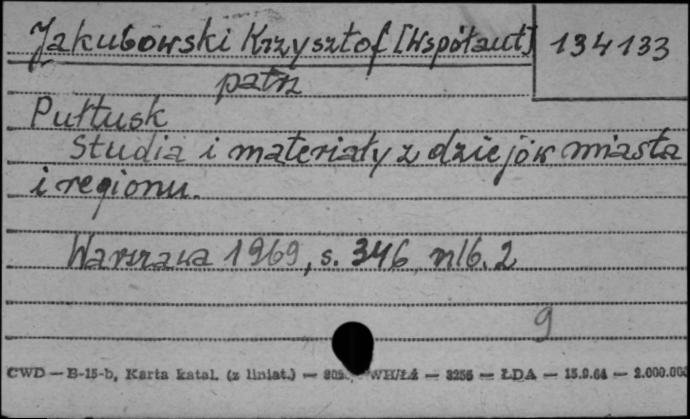 Jakubowski Krzysztof [Współaut] 134133
patrz
Pułtusk
Studia i materiały z dziejów miasta
i regionu.
Warszawa 1969, s. 346 nlb. 2
9
CWD — B-15-b, Karta katal. (z liniat.) — WH/Łź — 3256 — ŁDA — 15.9.64 — 2.000.000